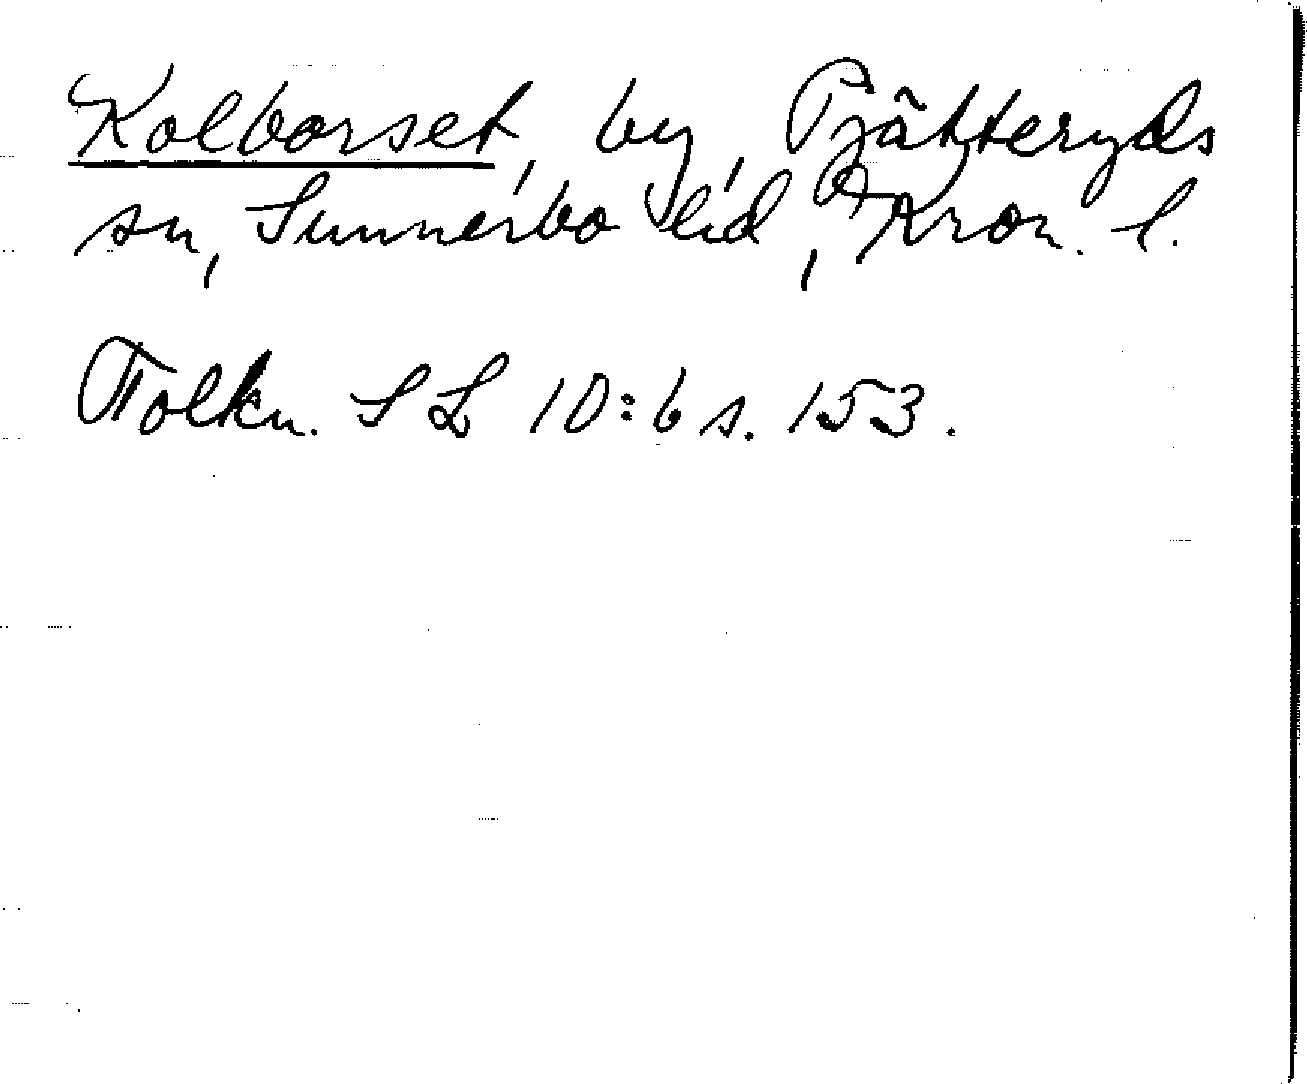 Kolborset, by, Pjätteryds
sn, Sunnerbo hd, Kron. l.
Tolkn. SL 10:6 s. 153.